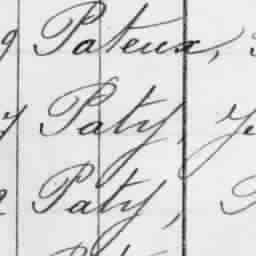 9 Pateux,
7 Paty, Je
2 Paty,